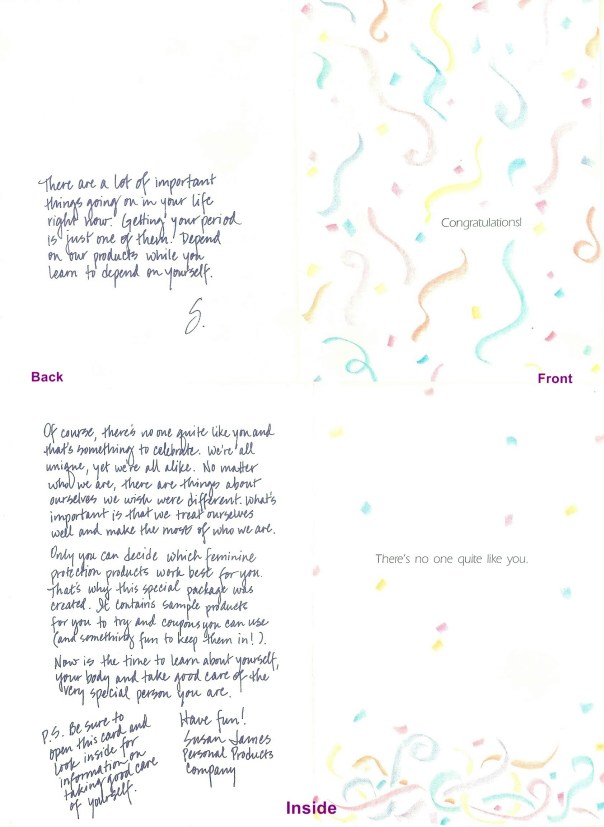 There are a lot of important
things going on in your life
right now. Getting your period
is just one of them. Depend
on our products while you
learn to depend on yourself.
S.
Back
Congratulations!
Front
Of course, there's no one quite like you and
that's something to celebrate. We're all
unique, yet we're all alike. No matter
who we are, there are things about
ourselves we wish were different. What's
important is that we treat ourselves
well and make the most of who we are.
Only you can decide which feminine
protection products work best for you.
That's why this special package was
created. It contains sample products
for you to try and coupons you can use
(and something fun to keep them in!).
Now is the time to learn about yourself,
your body and take good care of the
very special person you are.
Have fun!
Susan James
Personal Products
Company
P.S. Be sure to
open this card and
look inside for
information on
taking good care
of yourself.
There's no one quite like you.
Inside